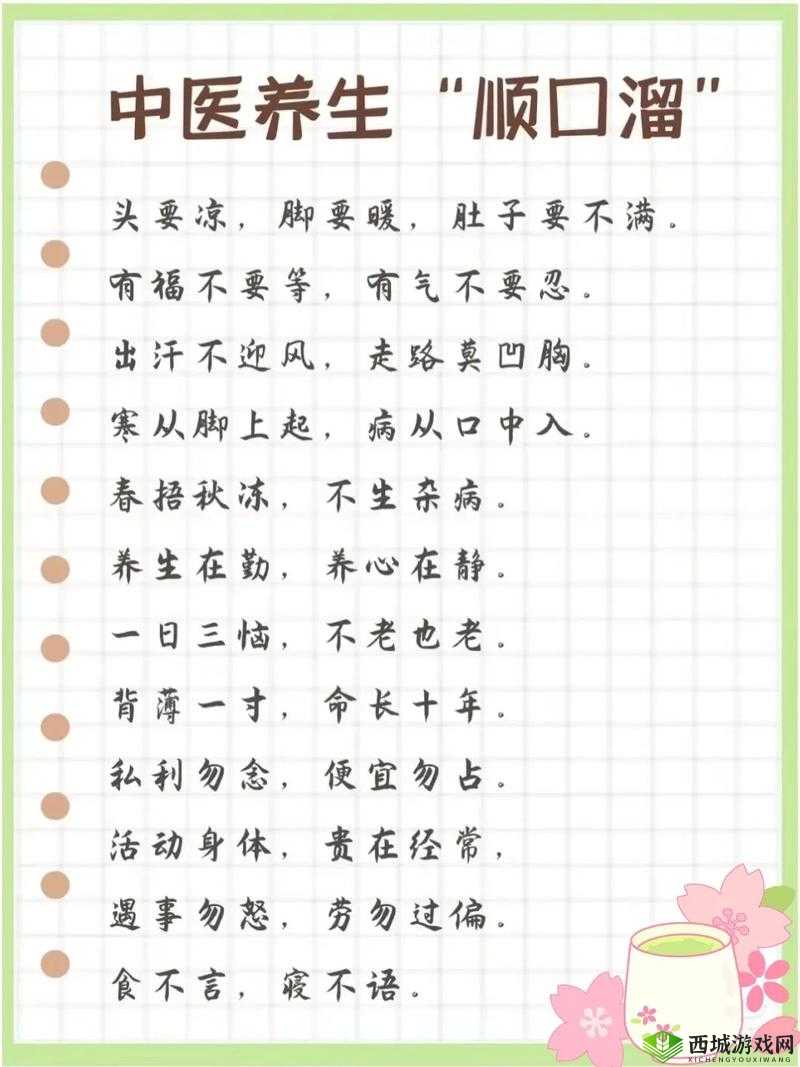 中医养生“顺口溜”
头要凉，脚要暖，肚子要不满。
有福不要等，有气不要忍。
出汗不迎风，走路莫凹胸。
寒从脚上起，病从口中入。
春捂秋冻，不生杂病。
养生在勤，养心在静。
一日三恼，不老也老。
背薄一寸，命长十年。
私利勿念，便宜勿占。
活动身体，贵在经常，
遇事勿怒，劳勿过偏。
食不言，寝不语。
西城游戏网
XICHENGYOUXIWANG